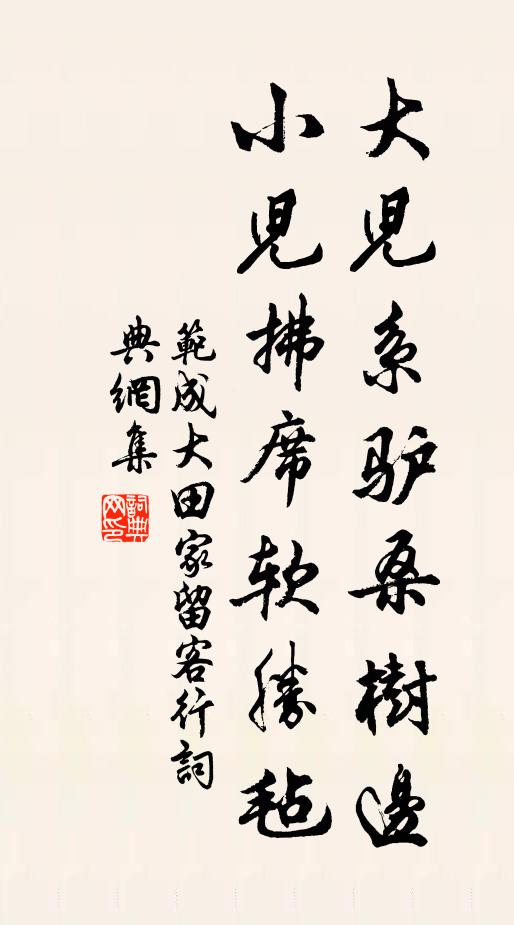 大兒系驴桑樹邊
小兒拂席软勝毡
範成大田家留客行詞
典網集
詞典網印